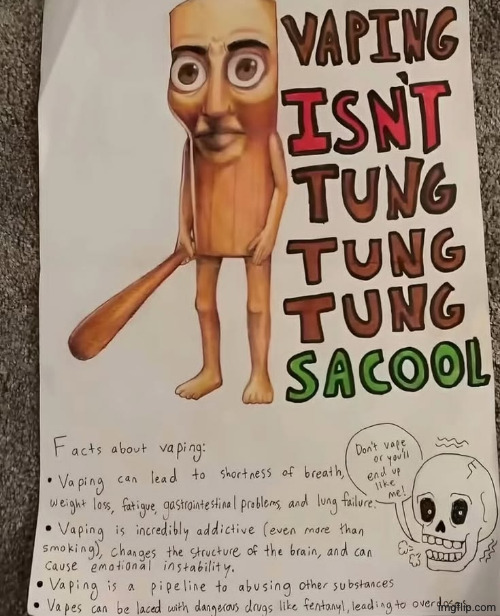 VAPING
ISN'T
TUNG
TUNG
TUNG
SACOOL
Facts about vaping:
• Vaping can lead to shortness of breath,
weight loss, fatigue, gastrointestinal problems, and lung failure.
• Vaping is incredibly addictive (even more than
smoking), changes the structure of the brain, and can
cause emotional instability.
• Vaping is a pipeline to abusing other substances
• Vapes can be laced with dangerous drugs like fentanyl, leading to
Don't vape
or you'll
end up
like
me!
imgflip.com